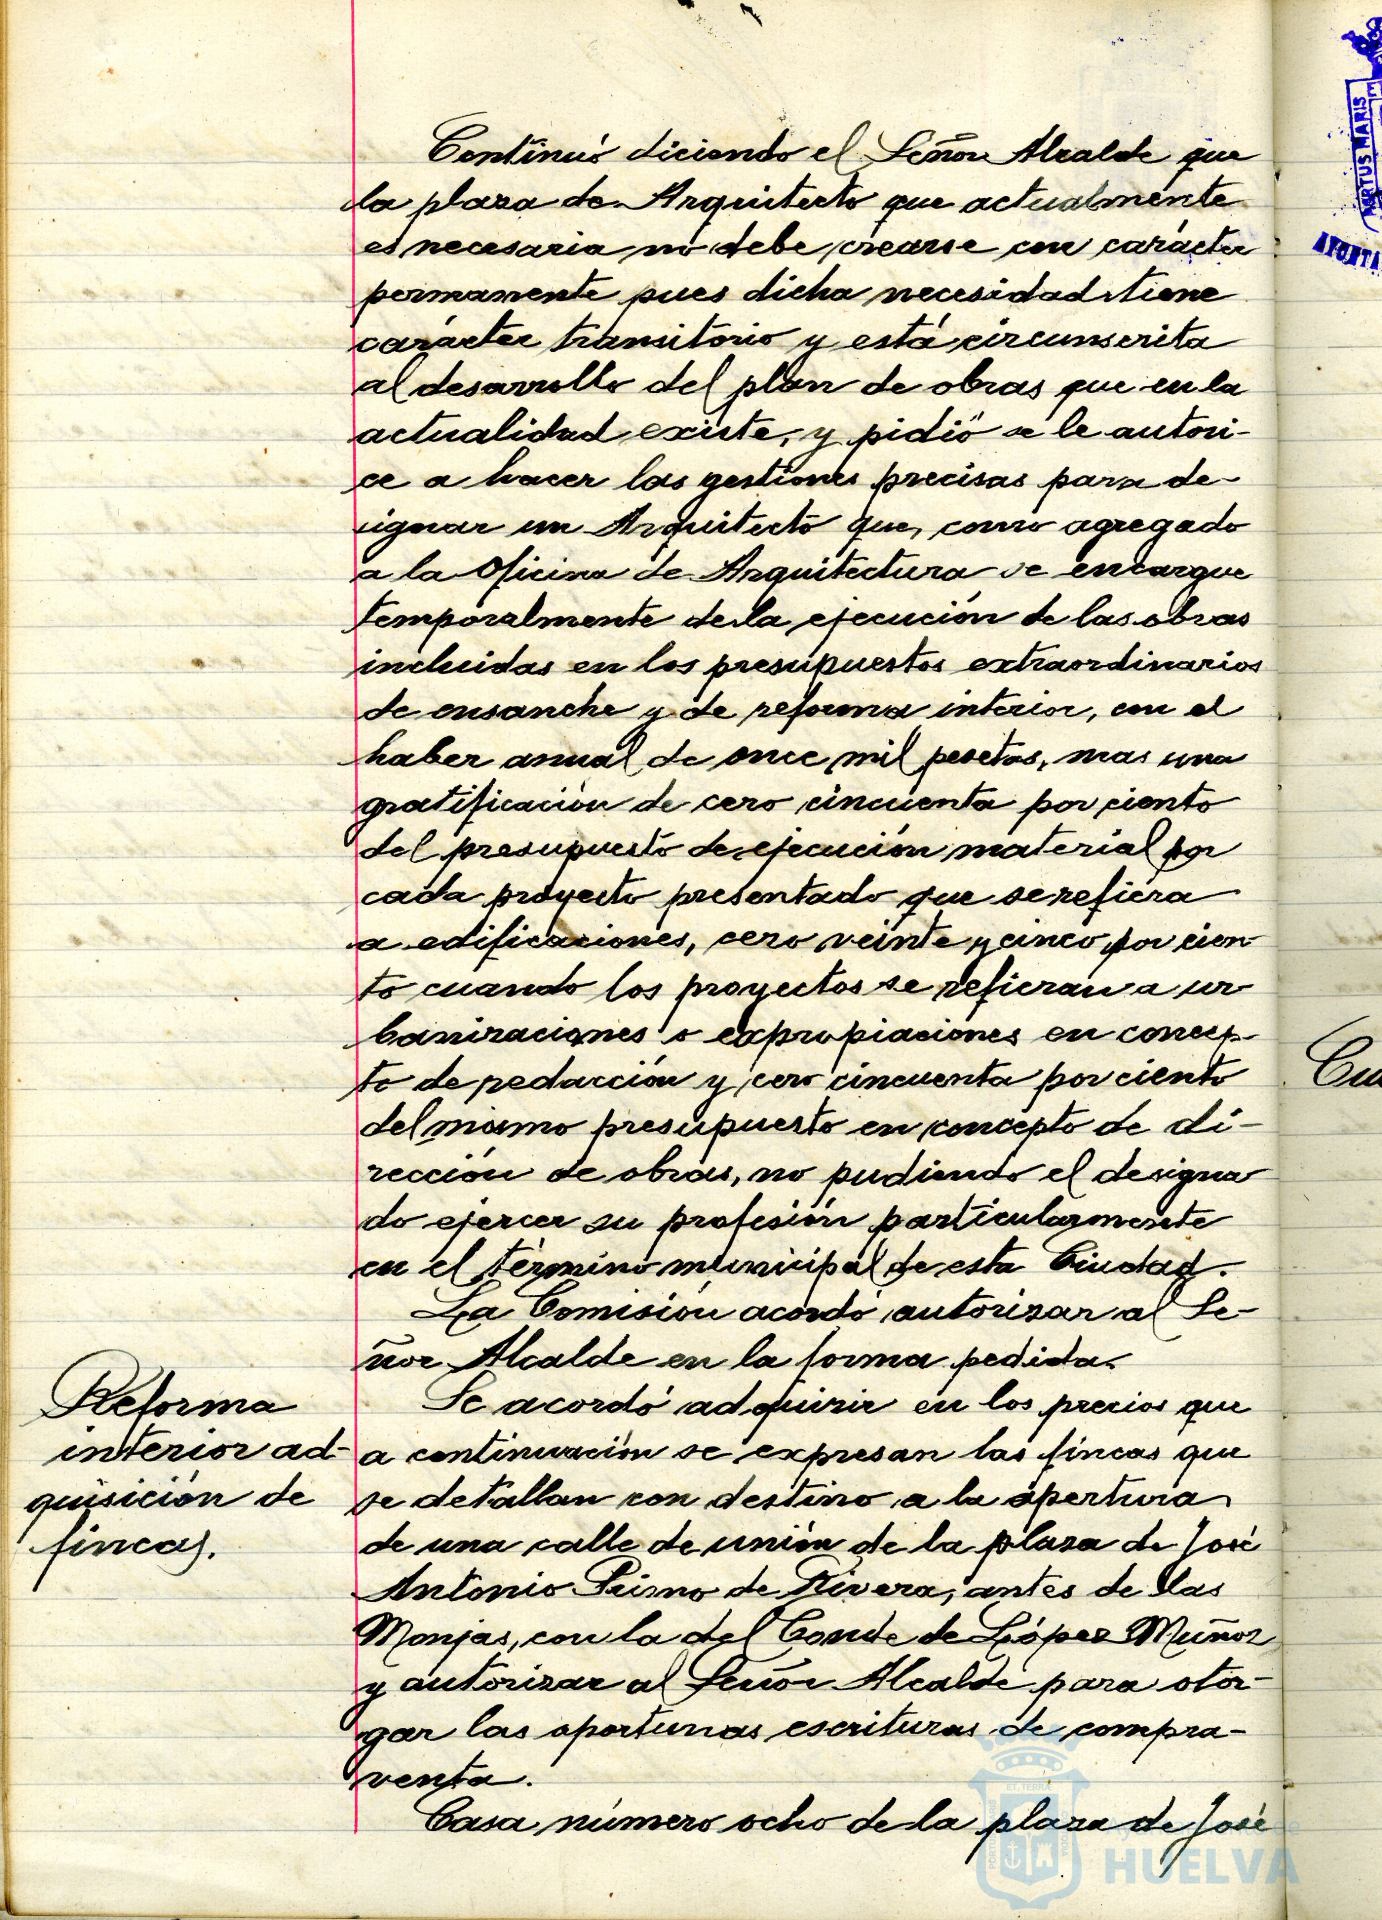 Continuó diciendo el Señor Alcalde que
la plaza de Arquitecto que actualmente
es necesaria no debe crearse con carácter
permanente pues dicha necesidad tiene
carácter transitorio y está circunscrita
al desarrollo del plan de obras que en la
actualidad existe, y pidió se le autori-
ce a hacer las gestiones precisas para de-
signar un Arquitecto que, como agregado
a la Oficina de Arquitectura se encargue
temporalmente de la ejecución de las obras
incluidas en los presupuestos extraordinarios
de ensanche y de reforma interior, con el
haber anual de once mil pesetas, mas una
gratificación de cero cincuenta por ciento
del presupuesto de ejecución material por
cada proyecto presentado que se refiera
a edificaciones, cero veinte y cinco por cien-
to cuando los proyectos se refieran a ur
banizaciones o expropiaciones en concep-
to de redacción y cero cincuenta por ciento
del mismo presupuesto en concepto de di-
rección de obras, no pudiendo el designa
do ejercer su profesión particularmente
en el término municipal de esta Ciudad.
La Comisión acordó autorizar al Se-
ñor Alcalde en la forma pedida.
Reforma
interior ad-
quisición de
fincas.
Se acordó adquirir en los precios que
a continuación se expresan las fincas que
se detallan con destino a la apertura
de una calle de unión de la plaza de José
Antonio Primo de Rivera, antes de las
Monjas, con la del Conde de López Muñoz
y autorizar al Señor Alcalde para otor-
gar las oportunas escrituras de compra-
venta.
Casa número ocho de la plaza de José
HUELVA